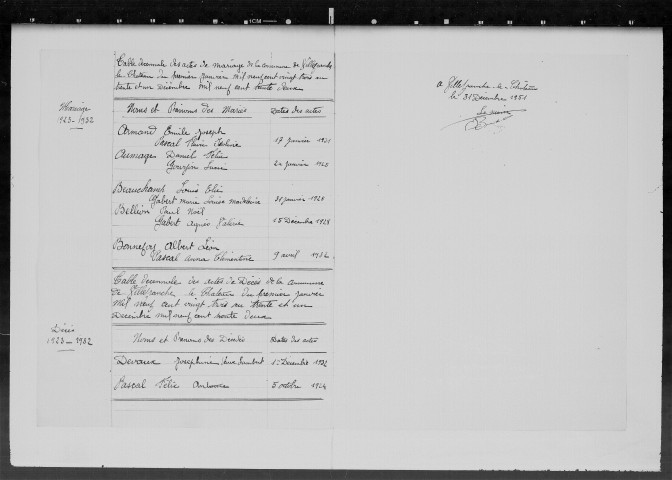 Table décennale des actes de mariage de la commune de Villefranche
le Château du premier janvier mil neuf cent vingt trois au
trente et un Décembre mil neuf cent trente deux
Mariage
1923-1932
Noms et Prénoms des Mariés Dates des actes
Armand Emile Joseph
Pascal 17 janvier
Aumages Daniel Félix
janvier
Beauchamp Louis Elie
Gabert Marie Louise Madeleine janvier 1928
Bellion Paul Noël
Gabert Agnès 15 Décembre 1928
Bonnefoy Albert Léon
Pascal Anna Clémentine 9 avril
Table décennale des actes de Décès de la commune
de Villefranche le Château du premier janvier
mil neuf cent vingt trois au trente et un
Décembre mil neuf cent trente deux
Décès
1923-1932
Noms et Prénoms des Décédés Dates des actes
Devaux Joséphine Décembre 1932
Pascal Félix 5 octobre 1924
a Villefranche-le-Château
le 31 Décembre
Le maire